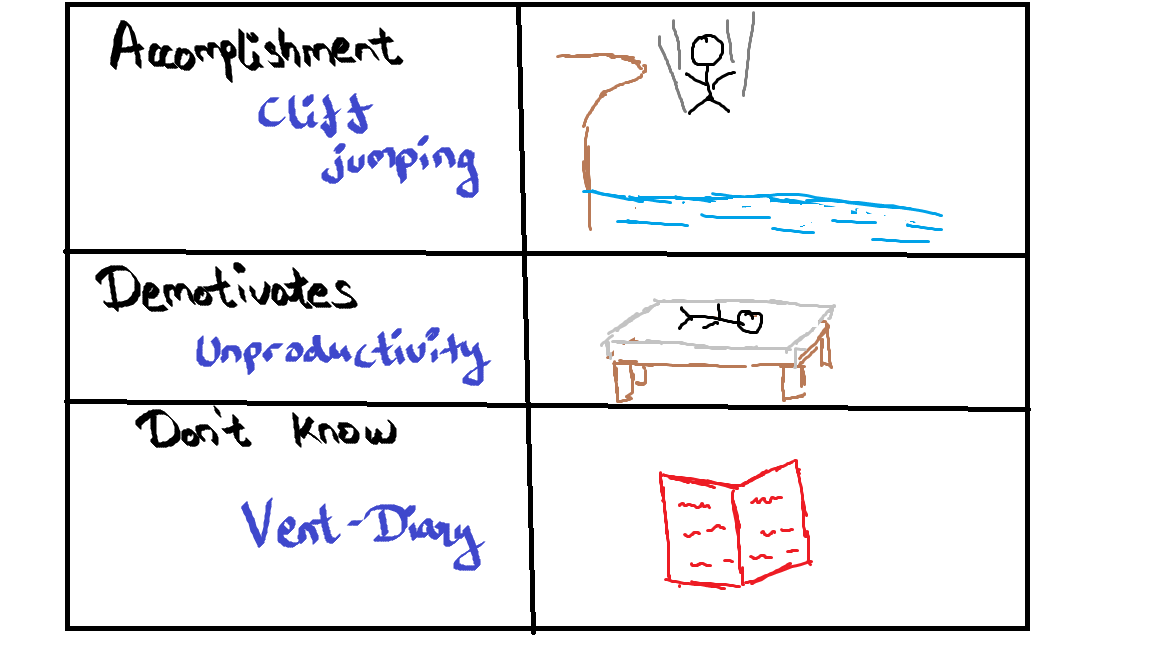 Accomplishment
Cliff
jumping
Demotivates
Unproductivity
Don't know
Vent-Diary